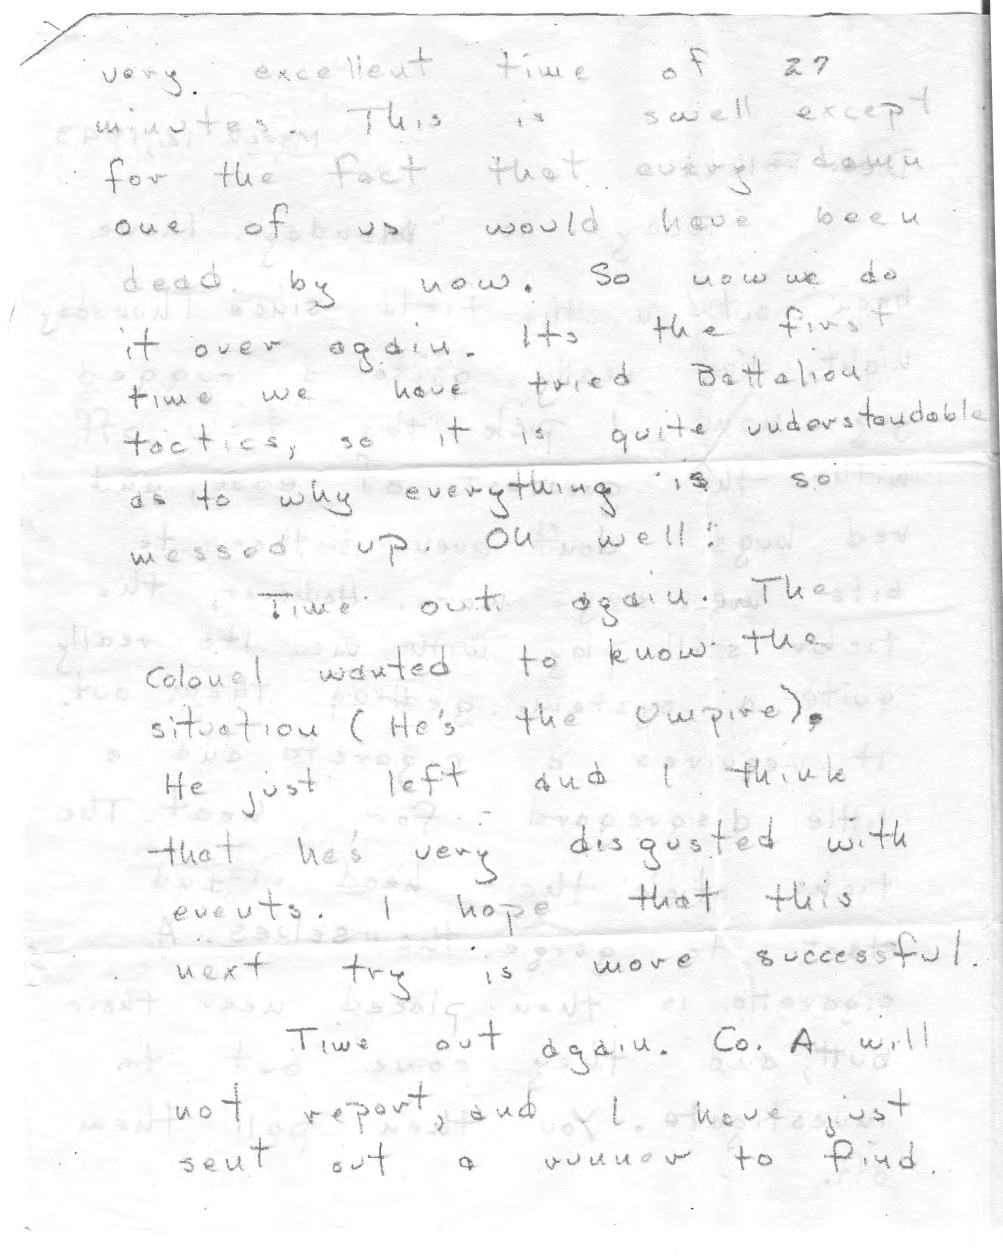 very excellent time of 27
minutes. This is swell except
for the fact that every damn
one of us would have been
dead by now. So now we do
it over again. Its the first
time we have tried Battalion
tactics, so it is quite understandable
as to why everything is so
messed up. Oh well!
Time out again. The
Colonel wanted to know the
situation (He's the Umpire).
He just left and I think
that he's very disgusted with
events. I hope that this
next try is more successful.
Time out again. Co. A will
not report, and I have just
sent out a runner to find